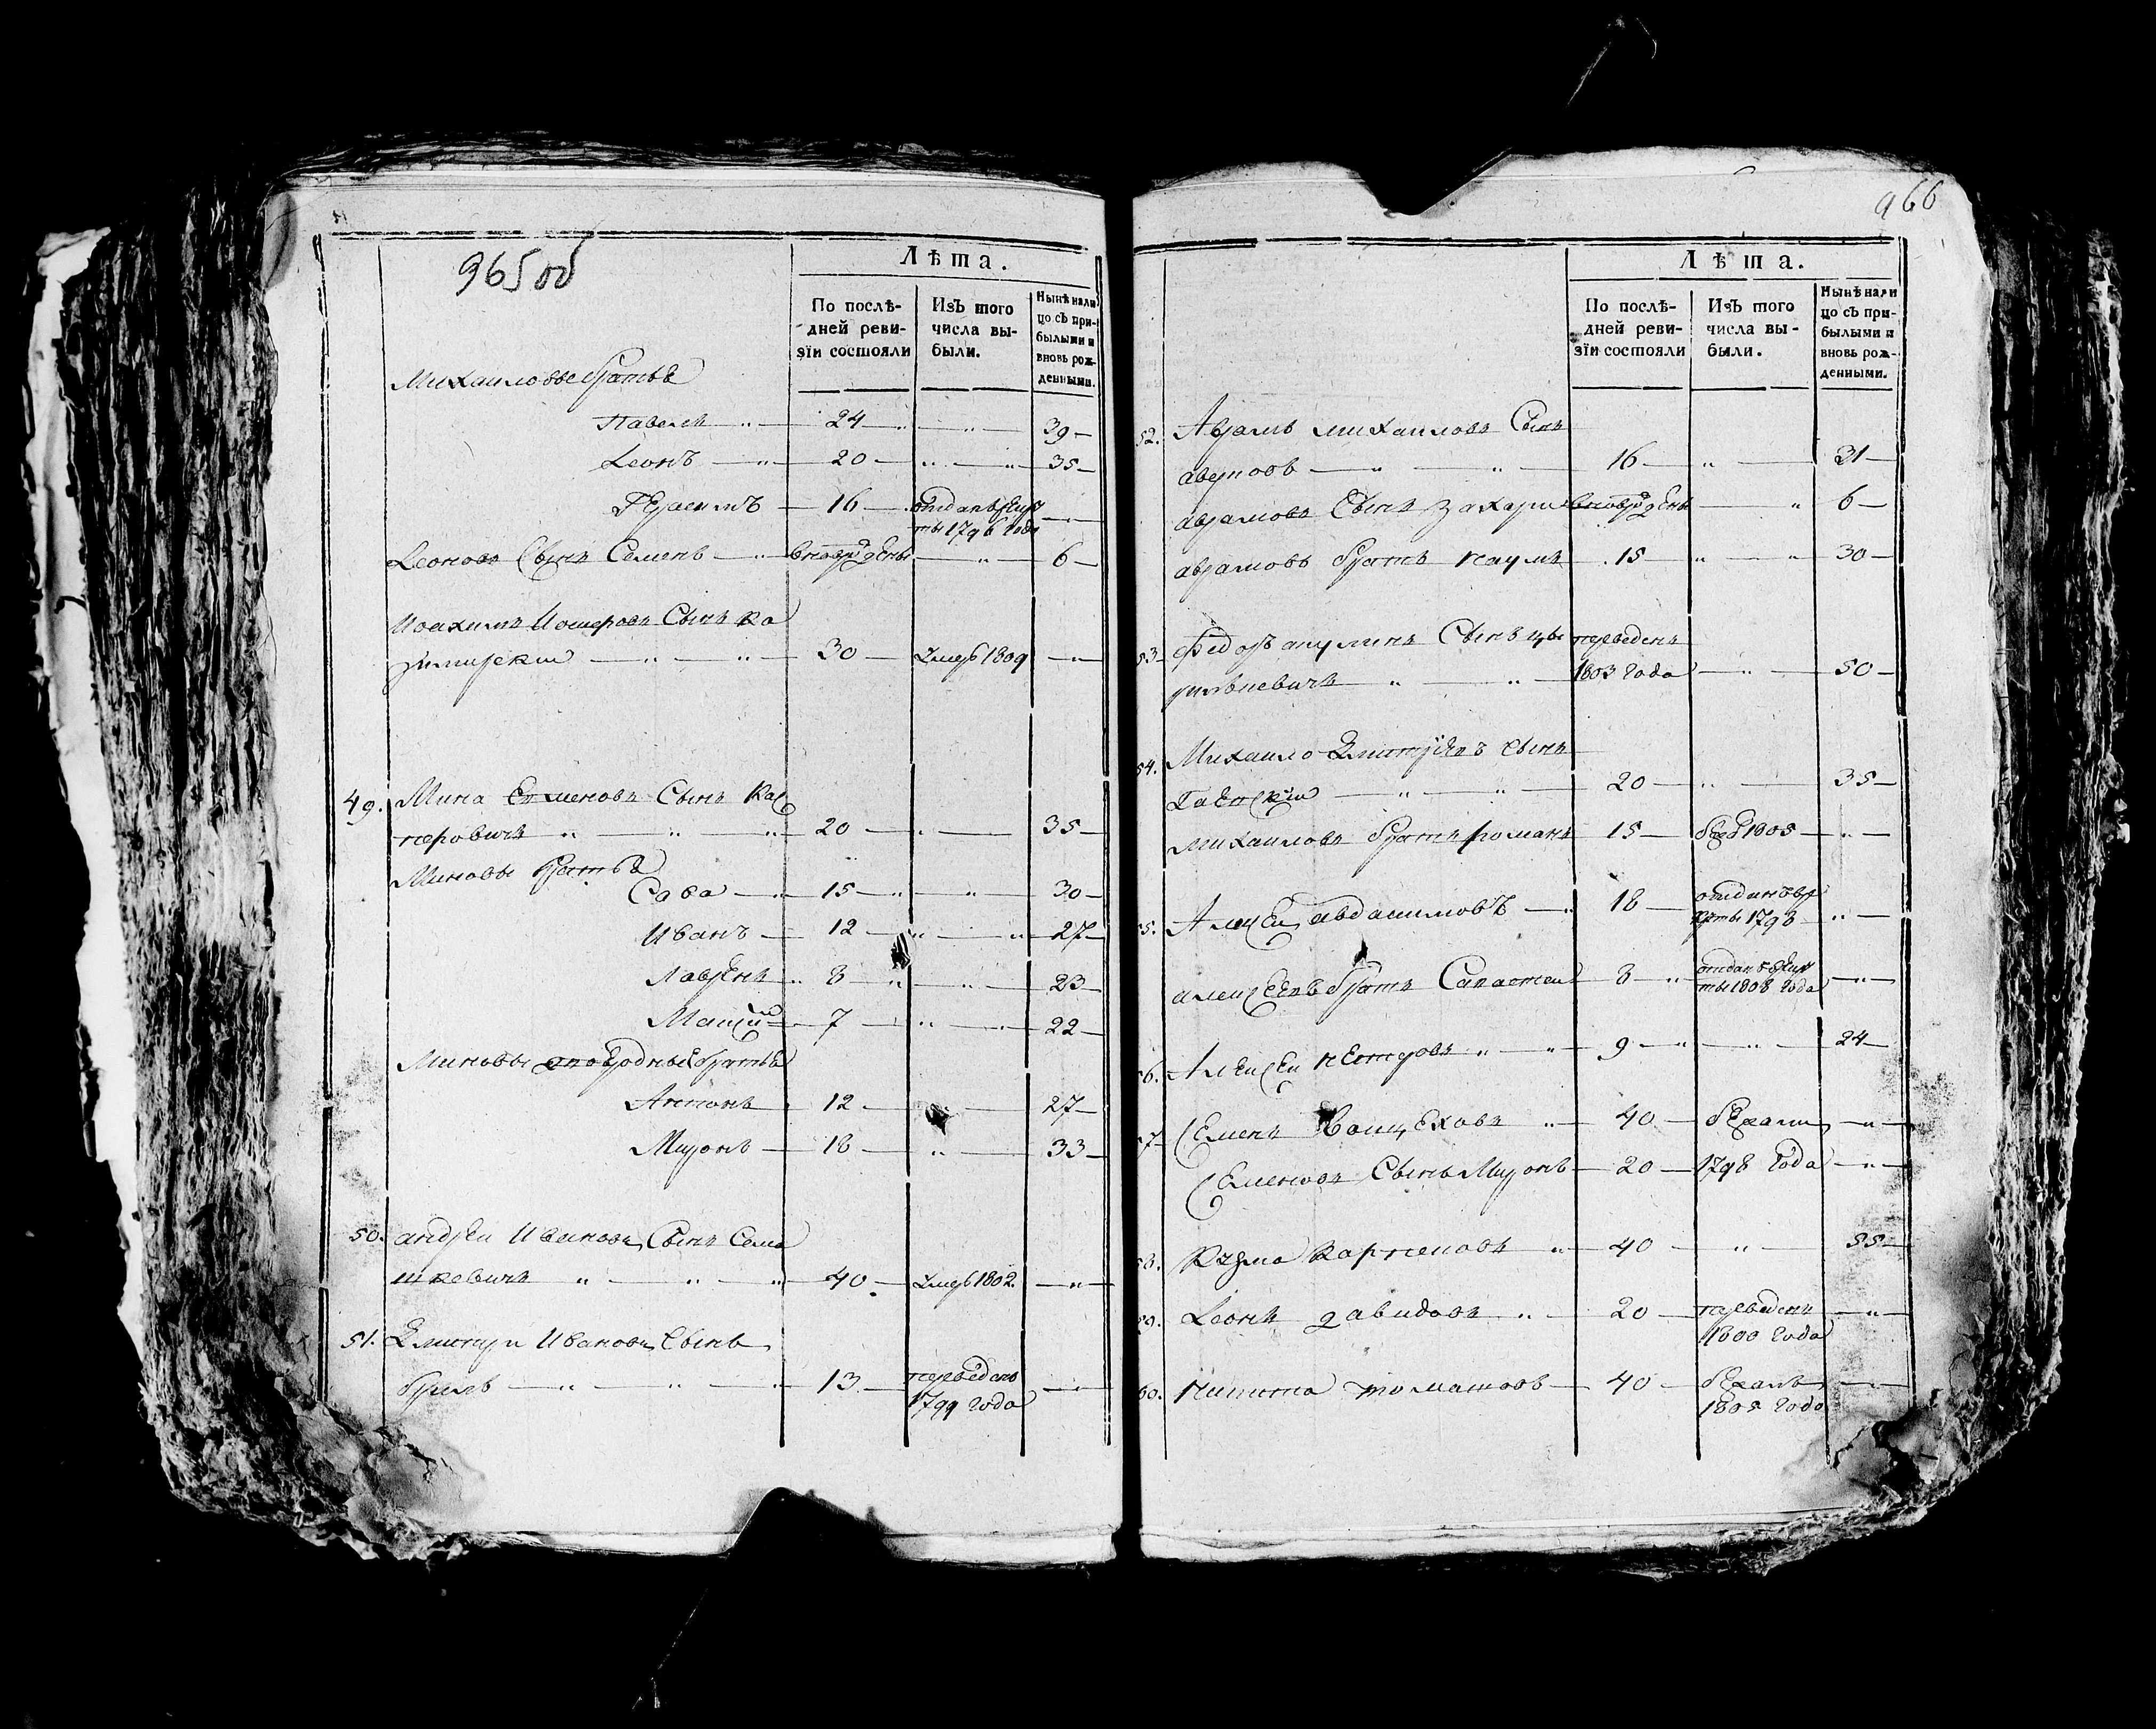 965 об
Лѣта.
По послѣ-
дней реви-
зїи состояли
Изъ того
числа вы-
были.
Нынѣ нали
цо съ при-
былыми и
вновь рож-
денными.
Михаиловы братьѣ
Павелъ 24 39
Леонъ 20 35
Герасимъ 16 отданъ врекру
ты 1796 года
Леоновъ Сынъ Семенъ вновь рожденъ 6
Иоахимъ Сынъ Ка
зимирскии 30 умеръ 1809
49. Мина Сынъ Кас
перовичъ 20 35
Миновы братьѣ
Сава 15 30
Иванъ 12 27
Лавренъ 8 23
7 22
Миновы братьѣ
Антонъ 12 27
Миронъ 18 33
50. андреи Ивановъ Сынъ Сема
шкевичъ 40 умеръ 1802.
51. Дмитри Ивановъ Сынъ
13 переведенъ
1799 года
966
Лѣта.
По послѣ-
дней реви-
зїи состояли
Изъ того
числа вы-
были.
Нынѣ нали
цо съ при-
былыми и
вновь рож-
денными.
52. Аврамъ михаиловъ Сынъ
16 31
аврамовъ Сынъ Захари вновь рожденъ 6
аврамовъ братъ наумъ 15 30
53. Федоръ Сынъ переведенъ
1803 года 50
54. Михаило Сынъ
20 35
михаиловъ братъ романъ 15 1805
55. Алексеи 18 отданъ врек
руты 1798
алексеевъ братъ 8 отданъ врекру
ты 1808 года
56. Алексеи петровъ 9 24
57. Семенъ 40 бежали
Семеновъ Сынъ Миронъ 20 1798 года
58. Кузма 40 55
59. Леонъ давидовъ 20 переведенъ
1800 года
60. Никита томашовъ 40 бежалъ
1805 года